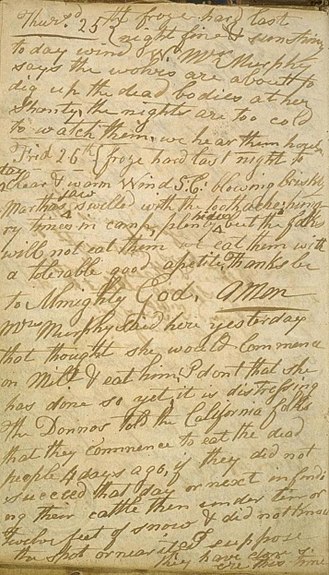 Thursd. 25th froze hard last
night fine & sunshiny
to day wind W. Mrs Murphy
says the wolves are about to
dig up the dead bodies at her
shanty, the nights are too cold
to watch them, we hear them howl
Frid 26th froze hard last night to
day
clear & warm Wind S.E. blowing briskly
Marthas jaw swelled with the toothache; hung
ry times in camp, plenty hides but the folks
will not eat them we eat them with
a tolerable good apetite. Thanks be
to Almighty God. Amen
Mrs Murphy said here yesterday
that thought she would commence
on Milt. & eat him, I dont that she
has done so yet, it is distressing
The Donnos told the California folks
that they commence to eat the dead
people 4 days ago, if they did not
succeed that day or next in findi
ng their cattle then under ten or
twelve feet of snow & did not know
the spot or near it, I suppose
they have done so ere this time